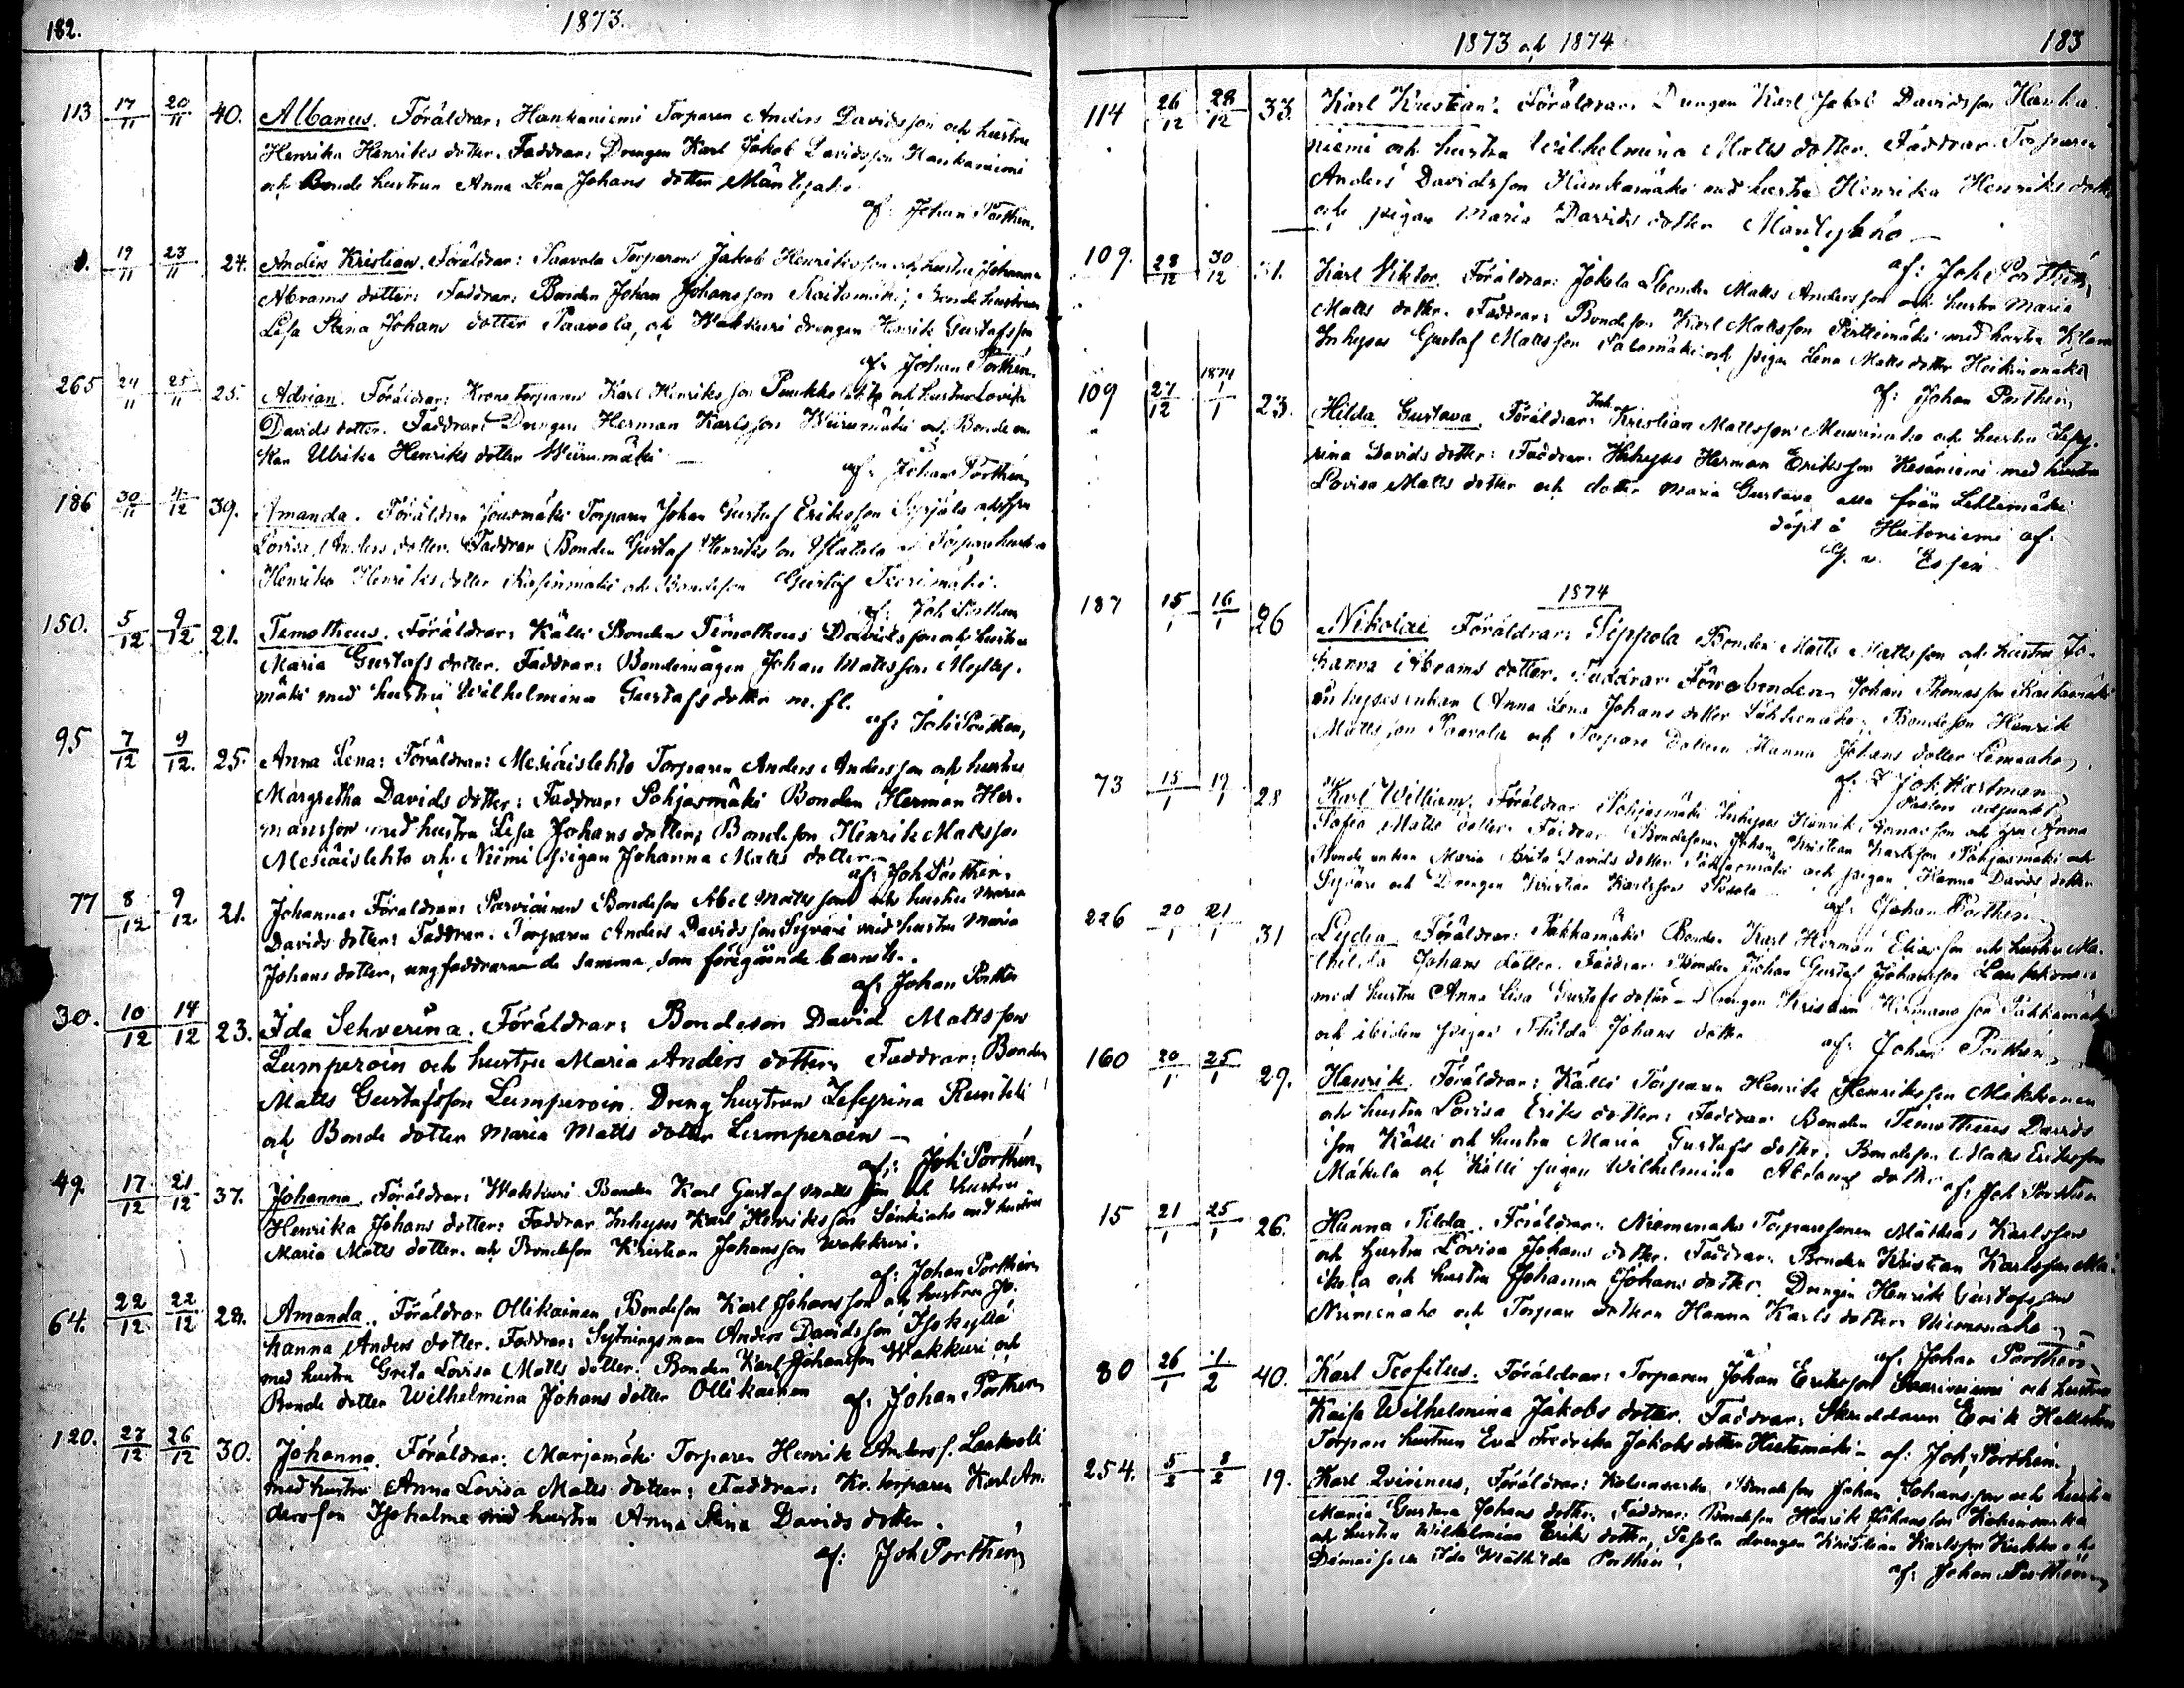 182.
1873.
113 17/11 20/11 40. Albanus. Föräldrar: Hankaniemi Torparen Anders Davidsson och hustru
Henrika Henriks dotter. Faddrar: Drengen Karl Jakob Davidsson Hankaniemi
och Bonde hustrun Anna Lena Johans dotter
af: Johan Porthén.
19/11 23/11 24. Anders Kristian. Föräldrar: Paavola Torparen Jakob Henriksson och hustru Johanna
Abrams dotter: Faddrar: Bonden Johan Johansson Raitamäki, Bonde hustrun
Lisa Stina Johans dotter Paavola, och Wakkuri drengen Henrik Gustafsson
af: Johan Porthén.
265 24/11 25/11 25. Adrian. Föräldrar: Kronotorparen Karl Henriksson och hustru Lovisa
Davids dotter. Faddrar: Drengen Herman Karlsson Wiirumäki och Bonde en-
kan Ulrika Henriks dotter Wiirumäki —
af: Johan Porthén,
186 30/11 4/12 39. Amanda. Föräldrar Torparen Johan Gustaf Eriksson och hustru
Lovisa Anders dotter. Faddrar Bonden Gustaf Henriksson
Henrika Henriks dotter och Bondeson Gustaf
af: Joh Porthén
150. 5/12 9/12 21. Timotheus. Föräldrar: Källi Bonden Timotheus Davidsson och hustru
Maria Gustafs dotter. Faddrar: Bondemågen Johan Mattsson Mylly-
mäki med hustru Wilhelmina Gustafs dotter m. fl.
af: Joh Porthén,
95 7/12 9/12. 25. Anna Lena: Föräldrar: Mesiäislehto Torparen Anders Andersson och hustru
Margretha Davids dotter: Faddrar: Pohjasmäki Bonden Herman Her-
mansson med hustru Lisa Johans dotter, Bondeson Henrik Matsson
Mesiäislehto och Niemi pigan Johanna Matts dotter —
af: Joh Porthén.
77 8/12 9/12. 21. Johanna: Föräldrar: Parviainen Bondeson Abel Mattsson och hustru Maria
Davids dotter: Faddrar. Torparen Anders Davidsson Syväri med hustru Maria
Johans dotter, ungfaddrarne de samma som föregående barnets.
af: Johan Porthén
30. 10/12 14/12 23. Ida Sehverina. Föräldrar: Bondeson David Mattsson
Lumperoin och hustru Maria Anders dotter. Faddrar: Bonden
Matts Gustafsson Lumperoin. Dreng hustrun Zefyrina
och Bonde dotter Maria Matts dotter Lumperoin —
af: Joh Porthén,
49. 17/12 21/12 37. Johanna. Föräldrar: Wakkuri Bonden Karl Gustaf Matts son och hustru
Henrika Johans dotter: Faddrar Inhyses Karl Henriksson med hustru
Maria Matts dotter. och Bondeson Kristian Johansson Wakkuri.
af: Johan Porthén
64. 22/12 22/12 28. Amanda. Föräldrar Ollikainen Bondeson Karl Johansson och hustru Jo-
hanna Anders dotter. Faddrar: Sytningsman Anders Davidsson Isokyllä
med hustru Greta Lovisa Matts dotter. Bonden Karl Johansson Wakkuri och
Bonde dotter Wilhelmina Johans dotter Ollikainen af: Johan Porthén
120. 23/12 26/12 30. Johanna. Föräldrar: Marjamäki Torparen Henrik Anders s.
med hustru Anna Lovisa Matts dotter: Faddrar: Kr. torparen Karl An-
dersson Isoholma med hustru Anna Stina Davids dotter.
af: Joh Porthén,
1873 och 1874
183
114 26/12 28/12 33. Karl Kristian. Föräldrar: Drengen Karl Jakob Davidsson Hanka-
niemi och hustru Wilhelmina Matts dotter. Faddrar Torparen
Anders Davidsson Hankamäki med hustru Henrika Henriks dotter
och pigan Maria Davids dotter Mäntyaho —
af: Joh Porthén,
109. 28/12 30/12 31. Karl Viktor. Föräldrar: Jokela Bonden Matts Andersson och hustru Maria
Matts dotter. Faddrar: Bondeson Karl Mattsson Perttimäki med hustru
Inhyses Gustaf Mattsson Salomäki och pigan Lena Matts dotter Heikinmäki
af: Johan Porthén,
109 27/12 1874 1/1 23. Hilda Gustava. Föräldrar: Inh. Kristian Mattsson och hustru Zepy-
rina Davids dotter: Faddrar. Inhyses Herman Eriksson Kesäniemi med hustru
Lovisa Matts dotter och dotter Maria Gustava alla från Lehtimäki
döpt å Hutoniemi af
G. v. Essen
1874
187 15/1 16/1 26 Nikolai Föräldrar: Pippola Bonden Matts Mattsson och hustru Jo-
hanna Abrams dotter. Faddrar Förrabonden Johan Thomasson
inhysesenkan Anna Lena Johans dotter Bondeson Henrik
Mattsson Paavola och Torpare dottren Hanna Johans dotter
af: Joh. Hartman
Pastors adjunkt
73 15/1 19/1 28 Karl William. Föräldrar Pohjasmäki Inhyses Henrik och hu Anna
Sofia Matts dotter. Faddrar Bondesonen Johan Kristian Karlsson Pohjasmäki och
Bonde enkan Maria Brita Davids dotter Pohjasmäki och pigan Hanna Davids dotter
Syväri och Drengen Kristian Karlsson
af: Johan Porthén
226 20/1 21/1 31 Lydia Föräldrar: Pukkamäki Bonden Karl Herman Eliasson och hustru Ma-
thilda Johans dotter. Faddrar Bonden Johan Gustaf Johansson
med hustru Anna Lisa Gustafs dotter — Drengen Kristian Hermansson Pukkamäki
och ibidem pigan Thilda Johans dotter
af: Johan Porthén,
160 20/1 25/1 29. Henrik. Föräldrar: Källi Torparen Henrik Henriksson Mikkonen
och hustru Lovisa Eriks dotter: Faddrar Bonden Timotheus Davids
son Källi och hustru Maria Gustafs dotter. Bondeson Matts Eriksson
Mäkelä och Källi pigan Wilhelmina Abrams dotter af: Joh Porthén
15 21/1 25/1 26. Hanna Tilda. Föräldrar: Niemenaho Torparesonen Mathias Karlsson
och hustru Lovisa Johans dotter. Faddrar: Bonden Kristian Karlsson
och hustru Johanna Johans dotter. Drengen Henrik Gustafsson
Niemenaho och Torpare dottren Hanna Karls dotter Niemenaho —
af: Johan Porthén
80 26/1 1/2 40. Karl Teofilus. Föräldrar: Torparen Johan Eriksson och hustru
Kaisa Wilhelmina Jakobs dotter. Faddrar: Skräddaren Erik
Torpare hustrun Eva Fredrika Jakobs dotter — af: Joh, Porthén.
254. 5/2 8/2 19. Karl Qvirinus, Föräldrar: Bondeson Johan Johansson och hustru
Maria Gustava Johans dotter. Faddrar: Bondeson Henrik Johansson
och hustru Wilhelmina Eriks dotter, drengen Kristian Karlsson
Ida Mathilda Porthén.
af: Johan Porthén